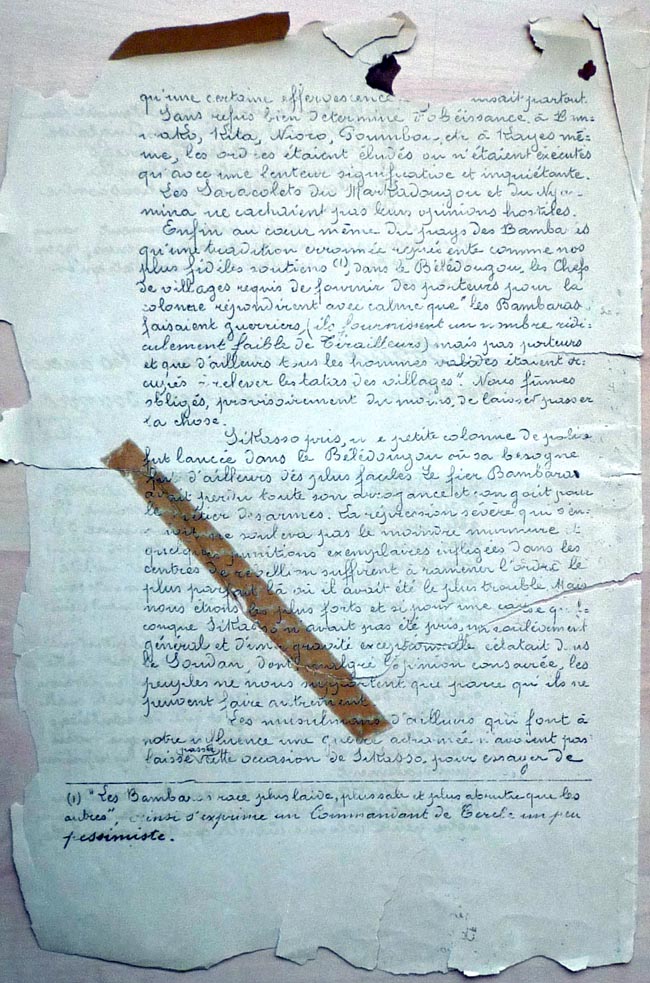 qu'une certaine effervescence nsait partout.
Sans refus bien déterminé d'obéissance, à Bam-
mako, Kita, Nioro, Goumbou, etc à Kayes mê-
me, les ordres étaient éludés ou n'étaient exécutés
qu'avec une lenteur significative et inquiétante.
Les Saracolets du Markadougou et du Nya-
mina ne cachaient pas leurs opinions hostiles.
Enfin au cœur même du pays des Bambaras
qu'une tradition erronée représente comme nos
plus fidèles soutiens (1), dans le Bélédougou, les Chefs
de villages requis de fournir des porteurs pour la
colonne répondirent avec calme que "les Bambaras
faisaient guerriers, (ils fournissent un nombre ridi-
culement faible de Tirailleurs) mais pas porteurs
et que d'ailleurs tous les hommes valides étaient oc-
cupés à relever les tatas des villages". Nous fûmes
obligés, provisoirement du moins, de laisser passer
la chose.
Sikasso pris, une petite colonne de police
fut lancée dans le Bélédougou où sa besogne
fut d'ailleurs des plus faciles. Le fier Bambara
avait perdu toute son arrogance et son goût pour
le métier des armes. La répression sévère qui s'en-
suivit ne souleva pas le moindre murmure et
quelques punitions exemplaires infligées dans les
centres de rébellion suffirent à ramener l'ordre le
plus parfait là où il avait été le plus troublé. Mais
nous étions les plus forts et si pour une cause quel-
conque Sikasso n'avait pas été pris, un soulèvement
général et d'une gravité exceptionnelle éclatait dans
le Soudan, dont, malgré l'opinion consacrée, les
peuples ne nous supportent que parce qu'ils ne
peuvent faire autrement.
Les musulmans d'ailleurs qui font à
notre influence une guerre acharnée n'avaient pas
laissé passer cette occasion de Sikasso, pour essayer de
(1) "Les Bambaras race plus laide, plus sale et plus abrutie que les
autres", ainsi s'exprime un Commandant de Cercle un peu
pessimiste.